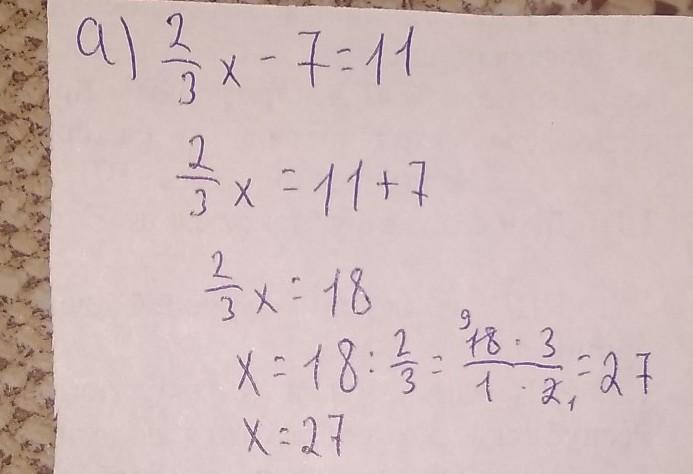 а) 2/3 x - 7 = 11
2/3 x = 11 + 7
2/3 x = 18
x = 18 : 2/3 = (18 · 3)/(1 · 2) = 27
x = 27